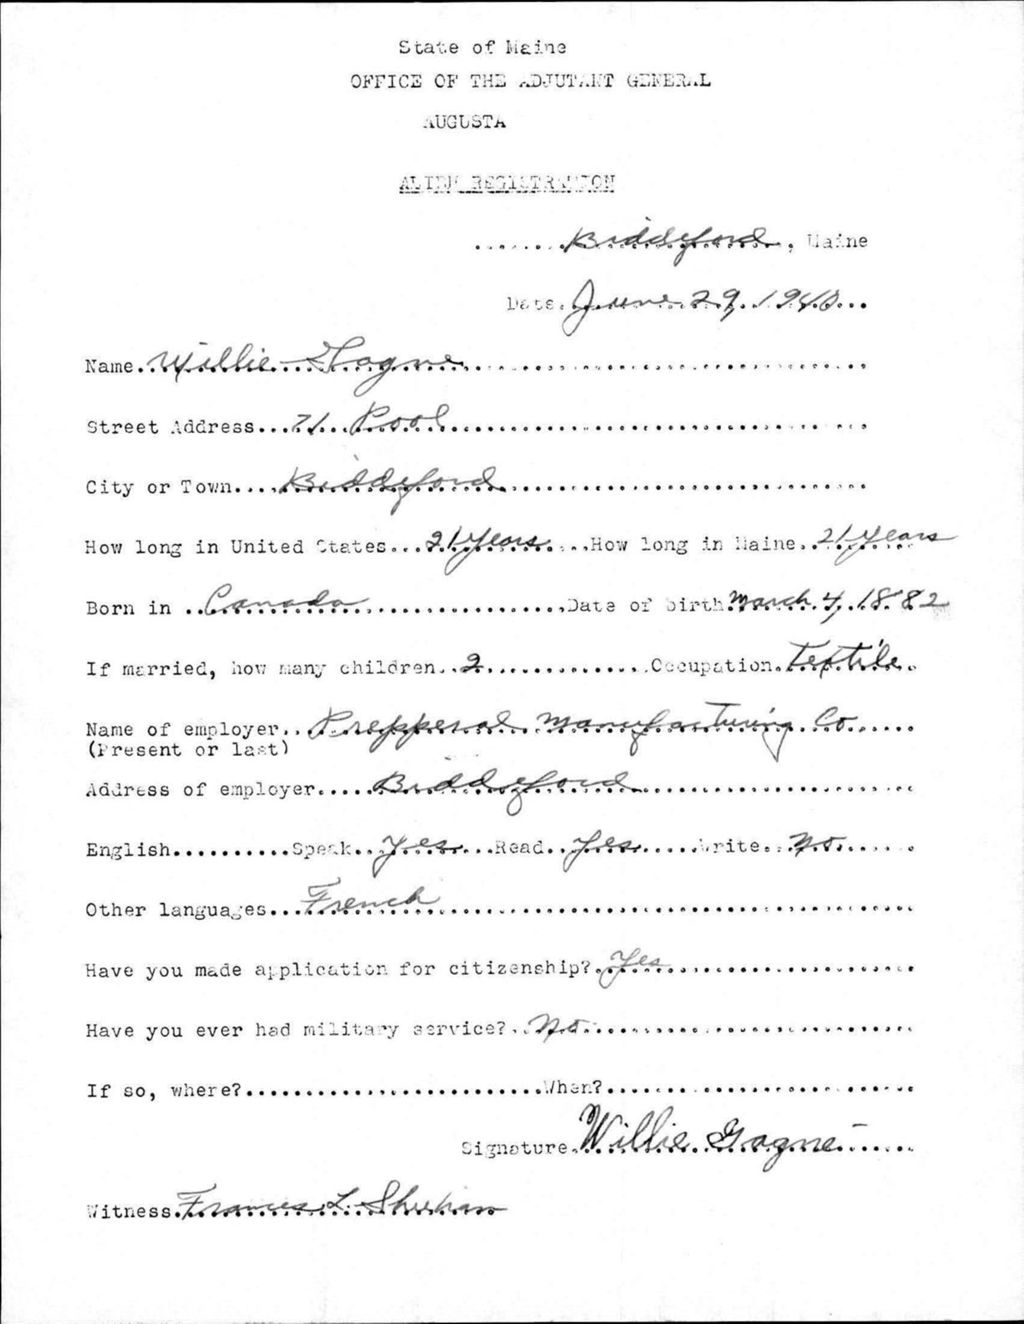 State of Maine
OFFICE OF THE ADJUTANT GENERAL
AUGUSTA
ALIEN REGISTRATION
Biddeford, Maine
Date June 29, 1940
Name Willie Gagne
Street Address 71 Pool
City or Town Biddeford
How long in United States 21 years How long in Maine 21 years
Born in Canada Date of birth March 4, 1882
If married, how many children 2 Occupation Textile
Name of employer Prepperal Manufacturing Co
(Present or last)
Address of employer Biddeford
English Speak Yes Read Yes Write No
Other languages French
Have you made application for citizenship? Yes
Have you ever had military service? No
If so, where? When?
Signature Willie Gagne
Witness Frances L Sheehan